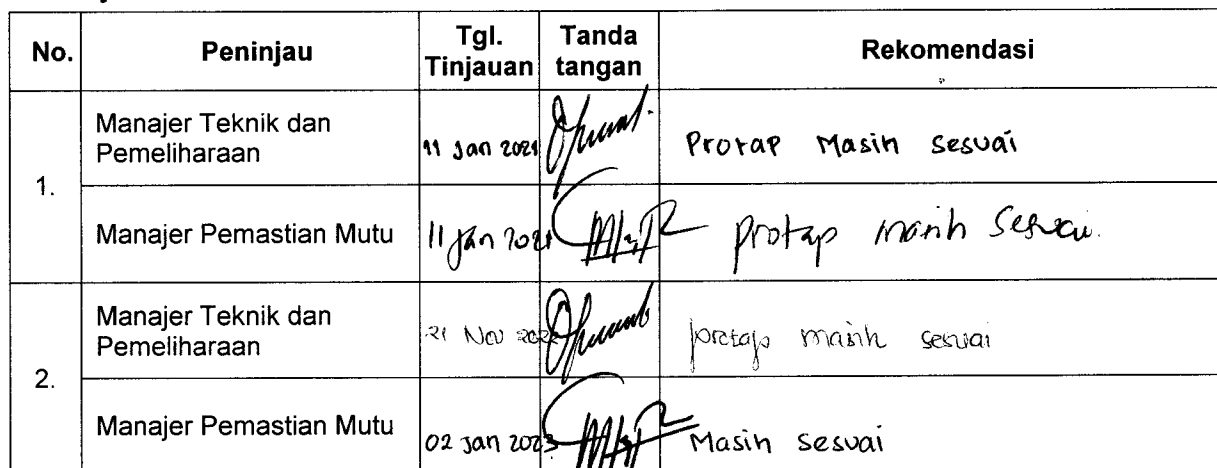 No. Peninjau Tgl. Tinjauan Tanda tangan Rekomendasi
1.
Manajer Teknik dan
Pemeliharaan
11 Jan 2021
Protap Masih sesuai
Manajer Pemastian Mutu
11 Jan 2021
protap masih sesuai.
2.
Manajer Teknik dan
Pemeliharaan
21 Nov
protap masih sesuai
Manajer Pemastian Mutu
02 Jan 2023
Masih sesuai